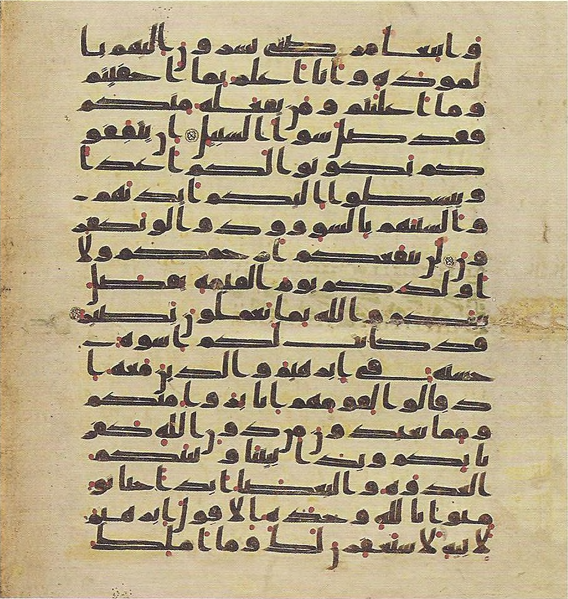 وابتغا مرضتي تسرون اليهم با
لموده وانا اعلم بما اخفيتم
وما اعلنتم ومن يفعله منكم
فقد ضل سوا السبيل ان يثقفو
كم يكونوا لكم اعدا
ويبسطوا اليكم ايديهم
والسنتهم بالسو وودوا لو تكفر
ون لن تنفعكم ارحامكم ولا
اولدكم يوم القيمه يفصل
بينكم والله بما تعملون بصير
قد كانت لكم اسوه
حسنه في ابرهيم والذين معه ا
ذ قالوا لقومهم انا برا منكم
ومما تعبدون من دون الله كفر
نا بكم وبدا بيننا وبينكم
العدوه والبغضا ابدا حتى تو
منوا بالله وحده الا قول ابرهيم
لابيه لاستغفرن لك وما املك